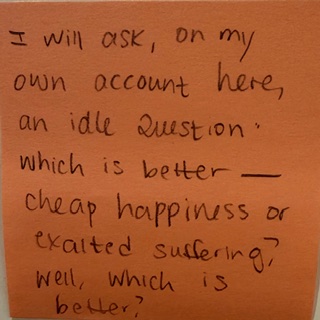 I will ask, on my
own account here,
an idle Question:
which is better —
cheap happiness or
exalted suffering?
well, which is
better?